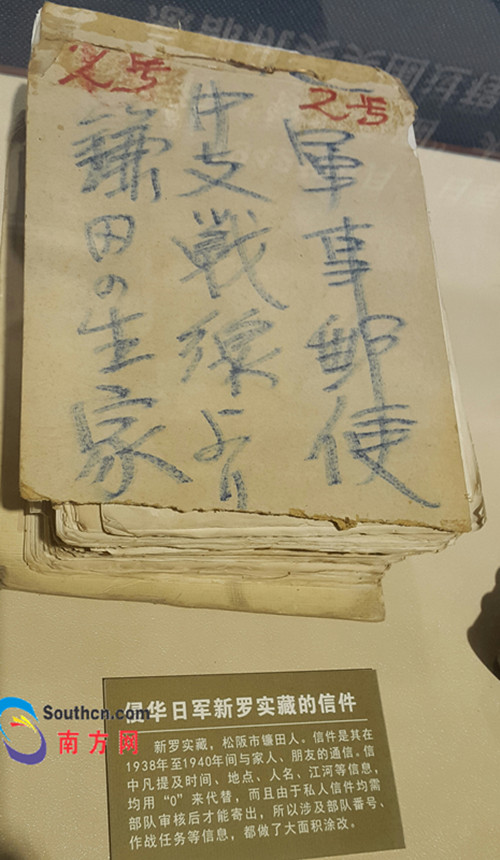 2号
軍事郵便
中支戦線より
鎌田の生家
侵华日军新罗实藏的信件
新罗实藏，松阪市镰田人。信件是其在
1938年至1940年间与家人、朋友的通信。信
中凡提及时间、地点、人名、江河等信息，
均用“0”来代替，而且由于私人信件均需
部队审核后才能寄出，所以涉及部队番号、
作战任务等信息，都做了大面积涂改。
Southcn.com
南方网